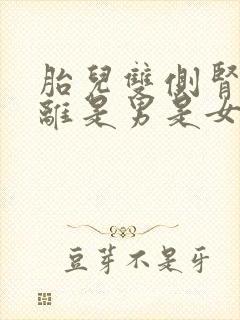 胎兒雙側腎
離是男是女
豆芽不是牙